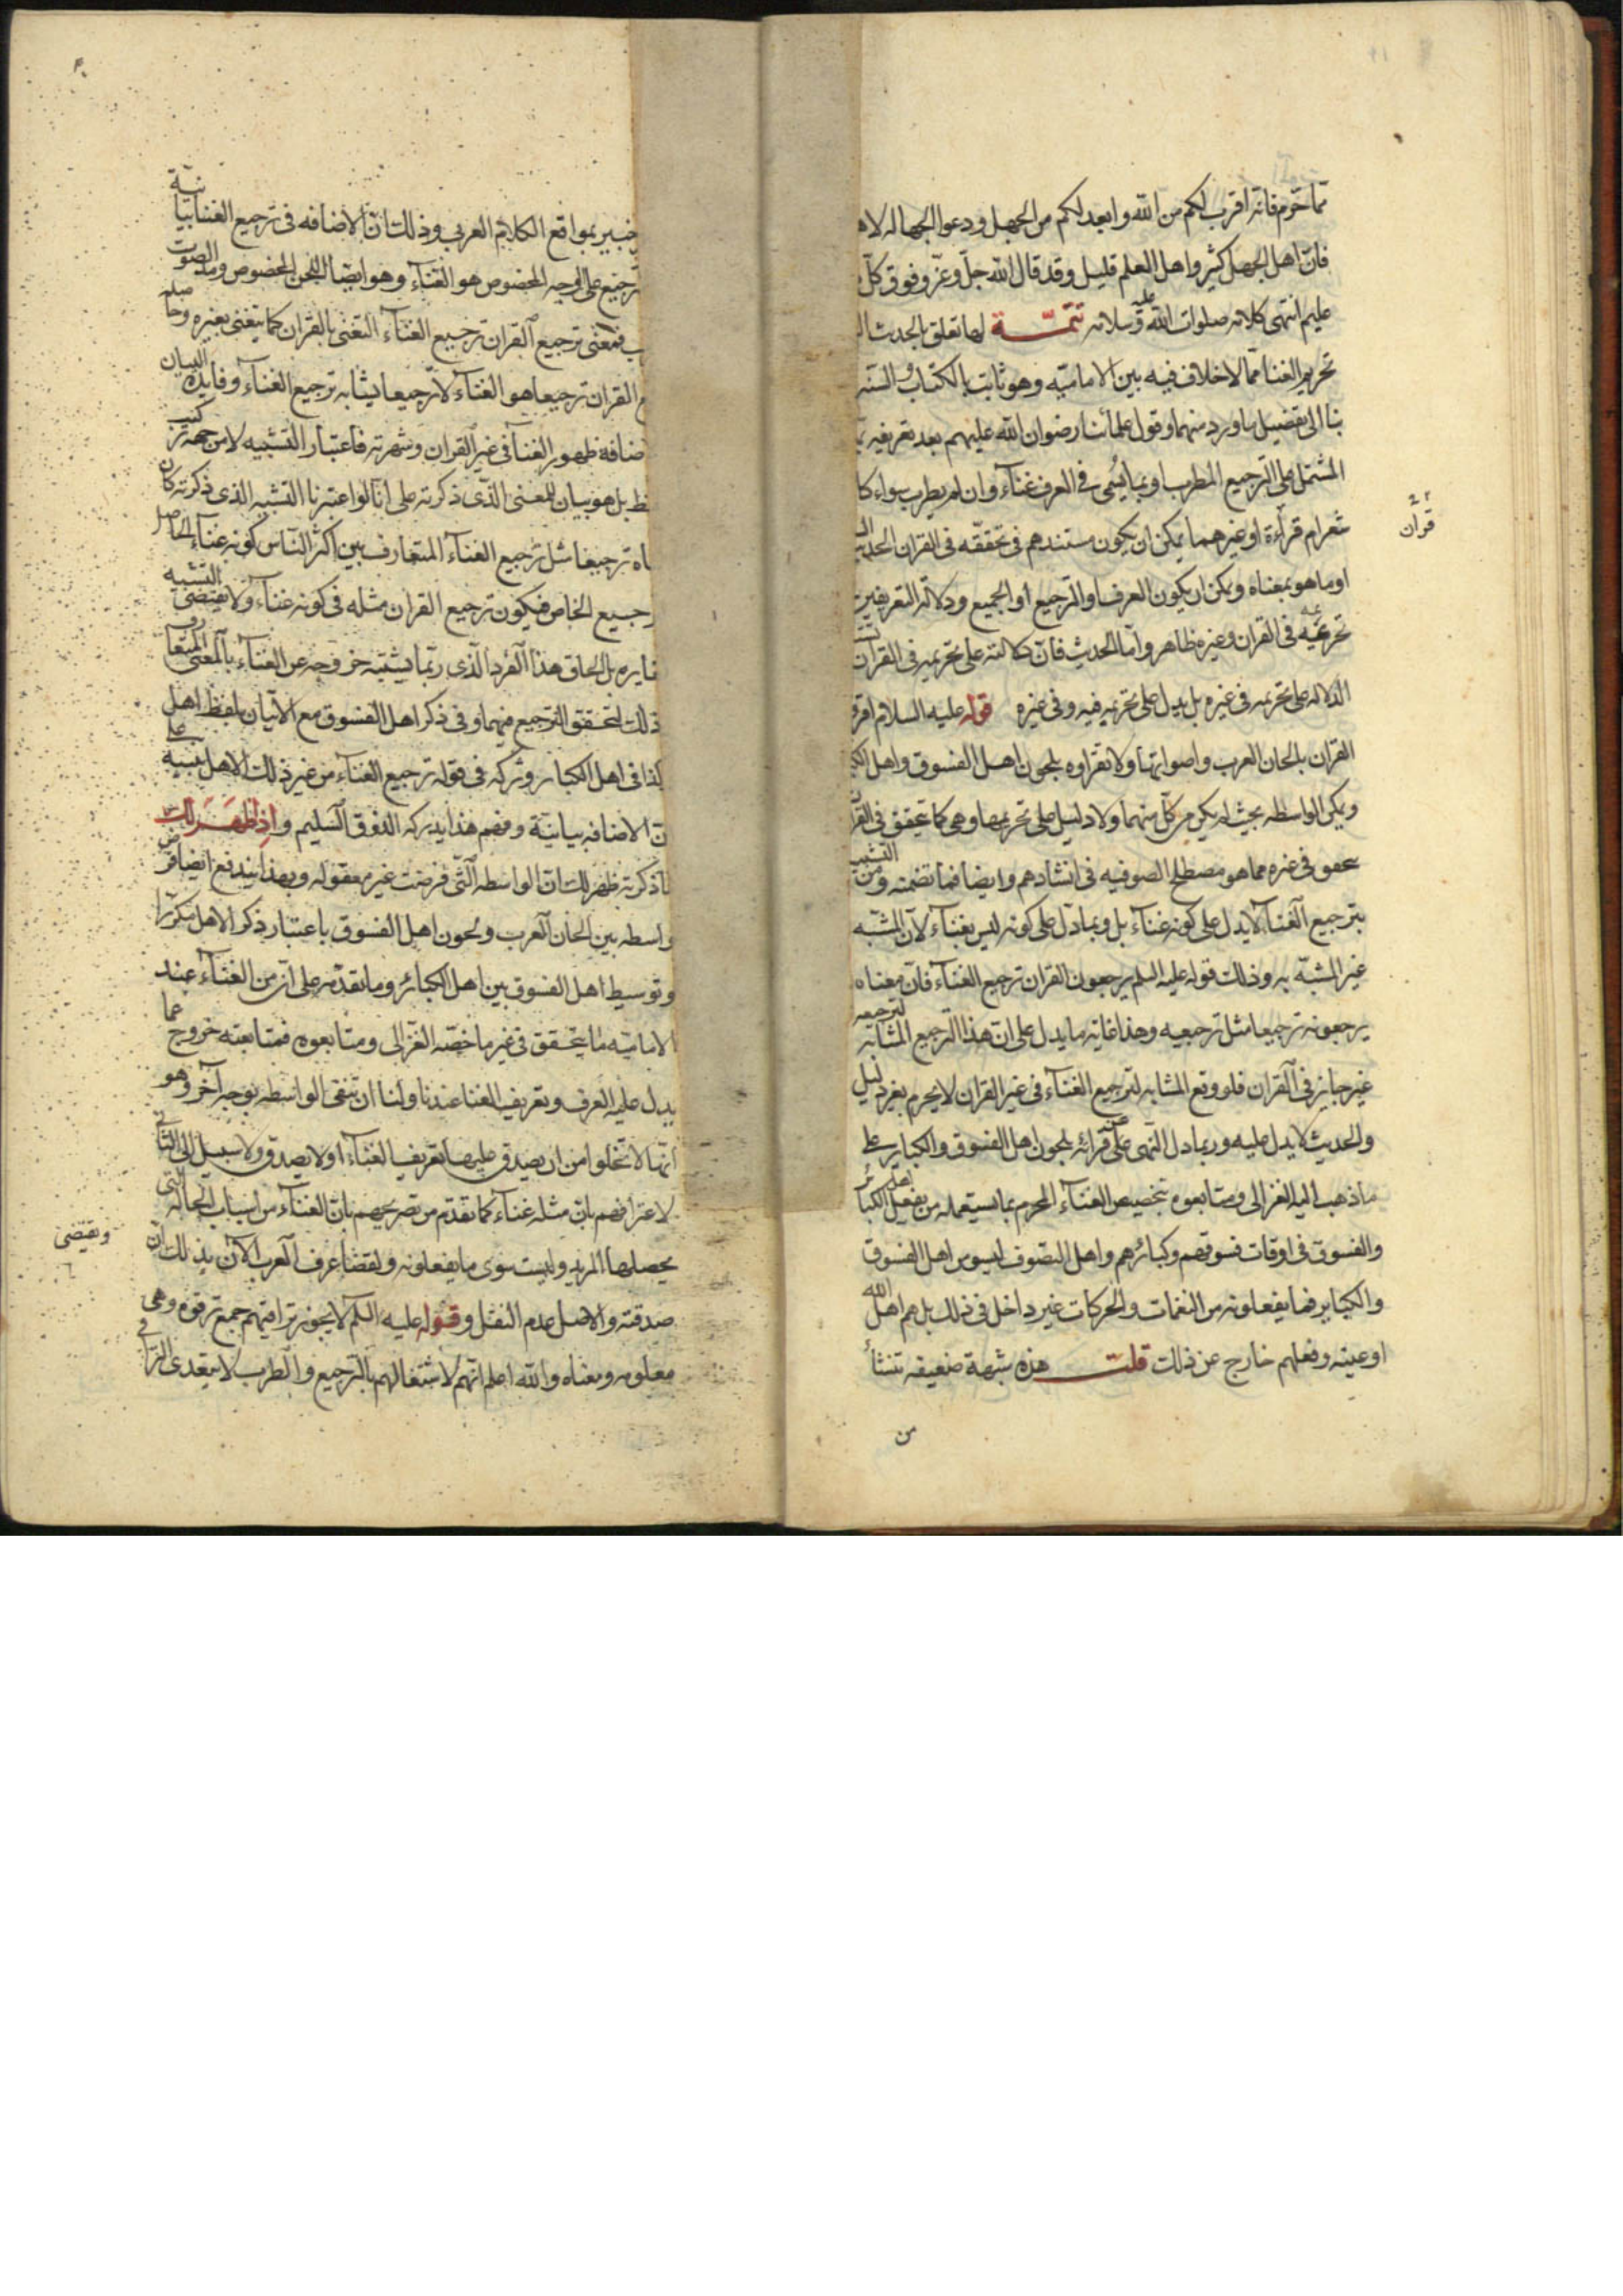 مما حرم فانه اقرب لكم من الله وابعد لكم من الجهل ودعوا الجهاله لاه
فان اهل الجهل كثير واهل العلم قليل وقد قال الله جل وعز وفوق كل
عليم انتهى كلامه صلوات الله عليه وسلامه تتمة لها تعلق بالحديث
تحريم الغنا مما لا خلاف فيه بين الاماميه وهو ثابت بالكتاب والسنه
بنا الى تفضيل ما ورد منهما وقول علمائنا رضوان الله عليهم بعد تعريفه
المشتمل على الترجيع المطرب او بما يسمى فى العرف غناء وان لم يطرب سواء كا
شعرام قراءة او غيرهما يمكن ان يكون مستندهم فى تحققه فى القران الحديث
قرأن
او ما هو بمعناه ويمكن ان يكون العرف او الترجيع او الجميع ودلالة التعريفين
تحريمه فى القران وغيره ظاهر واما الحديث فان دلالته على تحريمه فى القران
الدلاله على تحريمه فى غيره بل يدل على تحريمه فيه وفى غيره قوله عليه السلام اقرؤ
القران بالحان العرب واصواتها ولا تقراوه بلحون اهل الفسوق واهل الكب
ويكن الواسطه بحيث لم يكن من كل منهما ولا دليل على تحريمها وهى كما تحقق فى القران
تحقق فى غيره مما هو مصطلح الصوفيه فى انشادهم وايضا فما تضمنه من التشبيه
بترجيع الغنا لا يدل على كونه غناء بل وبما دل على كونه ليس بغناء لان المشبه
غير المشبه به وذلك قوله عليه السلم يرجعون القران ترجيع الغناء فان معناه
يرجعونه ترجيعا مثل ترجيعه وهذا غايه ما يدل على ان هذا الترجيع المشابه لترجيعه
غير جايز فى القران فلو وقع المشابه لترجيع الغناء فى غير القران لا يحرم بغير دليل
والحديث لا يدل عليه وربما دل النهى عن قرائه بلحون اهل الفسوق والكباير على
ما ذهب اليه الغزالى ومتابعوه بتخصيص الغناء المحرم بما يستعمله من يفعل اهل الكبائر
والفسوق فى اوقات فسوقهم وكبائرهم واهل التصوف ليسو من اهل الفسوق
والكباير فما يفعلونه من النغمات والحركات غير داخل فى ذلك بل هم اهل الله
او عيته وفعلهم خارج عن ذلك قلت هذه شبهة ضعيفه تنشأ
من
خبير بمواقع الكلام العربى وذلك ان الاضافه فى ترجيع الغنا بيانية
ترجيع على الوجه المخصوص هو الغناء وهو ايضا اللحن المخصوص ومد الصوت
فمعنى ترجيع القران ترجيع الغناء التغنى بالقران كما يتغنى بغيره وحاصله
القران ترجيعا هو الغناء لا ترجيعا يشابه ترجيع الغناء وفايدة البيان
ضافه ظهور الغنا فى غير القران وشهرته فاعتبار التشبيه لا من جهة تركيب
بل هو بيان للمعنى الذى ذكرته على انا لو اعتبرنا التشبيه الذى ذكرته كان
ناه ترجيعا مثل ترجيع الغناء المتعارف بين اكثر الناس كونه غناء الحاصل
رجيع الخاص فيكون ترجيع القران مثله فى كونه غناء ولا يقتضى التشبيه
غايره بل الحاق هذا الفرد الذى ربما يشتبه خروجه عن الغناء بالمعنى المتعارف
ذلك لتحقق الترجيع فيهما وفى ذكر اهل الفسوق مع الاتيان بلفظ اهل
كذا فى اهل الكبائر وتركه فى قوله ترجيع الغناء من غير ذلك الاهل تنبيه على
ن الاضافه بيانية وفهم هذا يدركه الذوق السليم واذ اظهر لك
ما ذكرته ظهر لك ان الواسطه التى فرضت غير معقوله وبهذا يندفع ايضا فرض
واسطه بين الحان العرب ولحون اهل الفسوق باعتبار ذكر الاهل مكررا
وتوسيط اهل الفسوق بين اهل الكبائر وما تقدم على ان من الغناء عند
الاماميه ما يتحقق فى غير ما خصه الغزالى ومتابعوه فمتابعته خروج عما
يدل عليه العرف وتعريف الغنا عندنا ولنا ان ننفى الواسطه بوجه آخر وهو
انها لا تخلوا من ان يصدق عليها تعريف الغناء او لا يصدق ولا سبيل الى الثانى
لاعترافهم بان مثله غناء كما تقدم من تصريحهم بان الغناء من اسباب الحاله التى
يحصلها المريد وليست سوى ما يفعلونه ولقضاء عرف العرب الان بذلك ان
ويقتضى
صدقته والاصل عدم النقل وقوله عليه السلم لا يجوز تراقيهم جمع ترقوه وهى
معلومه ومعناه والله اعلم انهم لاشتغالهم بالترجيع والطرب لا يتعدى القران فى